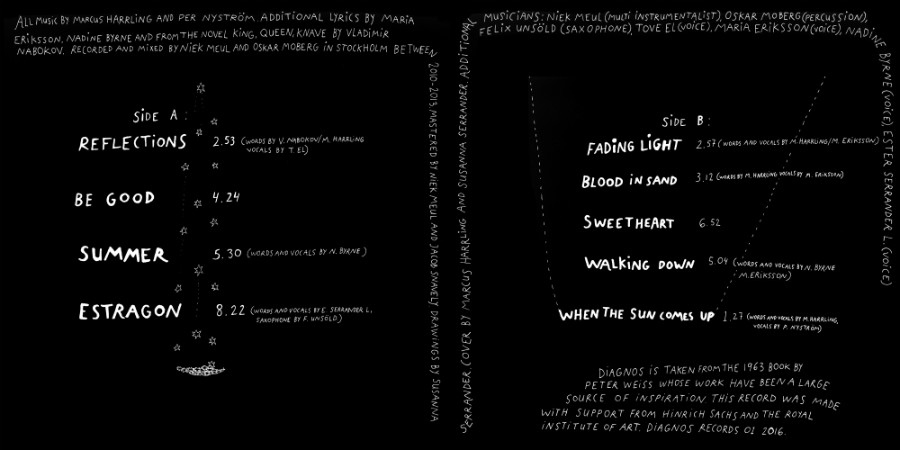 ALL MUSIC BY MARCUS HARRLING AND PER NYSTRÖM. ADDITIONAL LYRICS BY MARIA
ERIKSSON, NADINE BYRNE AND FROM THE NOVEL KING, QUEEN, KNAVE BY VLADIMIR
NABOKOV. RECORDED AND MIXED BY NIEK MEUL AND OSKAR MOBERG IN STOCKHOLM BETWEEN
2010-2013. MASTERED BY NIEK MEUL AND JACOB SNAVELY DRAWINGS BY SUSANNA
SERRANDER. COVER BY MARCUS HARRLING AND SUSANNA SERRANDER. ADDITIONAL
MUSICIANS: NIEK MEUL (MULTI INSTRUMENTALIST), OSKAR MOBERG (PERCUSSION),
FELIX UNSÖLD (SAXOPHONE), TOVE EL (VOICE), MARIA ERIKSSON (VOICE), NADINE
BYRNE (VOICE), ESTER SERRANDER L. (VOICE)
SIDE A:
REFLECTIONS 2.53 (WORDS BY V. NABOKOV/M. HARRLING
VOCALS BY T. EL)
BE GOOD 4.24
SUMMER 5.30 (WORDS AND VOCALS BY N. BYRNE)
ESTRAGON 8.22 (WORDS AND VOCALS BY E. SERRANDER L,
SAXOPHONE BY F. UNSÖLD)
SIDE B:
FADING LIGHT 2.57 (WORDS AND VOCALS BY M. HARRLING/M. ERIKSSON)
BLOOD IN SAND 3.12 (WORDS BY M. HARRLING VOCALS BY M. ERIKSSON)
SWEETHEART 6.52
WALKING DOWN 5.04 (WORDS AND VOCALS BY N. BYRNE
M. ERIKSSON)
WHEN THE SUN COMES UP 1.27 (WORDS AND VOCALS BY M. HARRLING,
VOCALS BY P. NYSTRÖM)
DIAGNOS IS TAKEN FROM THE 1963 BOOK BY
PETER WEISS WHOSE WORK HAVE BEEN A LARGE
SOURCE OF INSPIRATION THIS RECORD WAS MADE
WITH SUPPORT FROM HINRICH SACHS AND THE ROYAL
INSTITUTE OF ART. DIAGNOS RECORDS 01 2016.